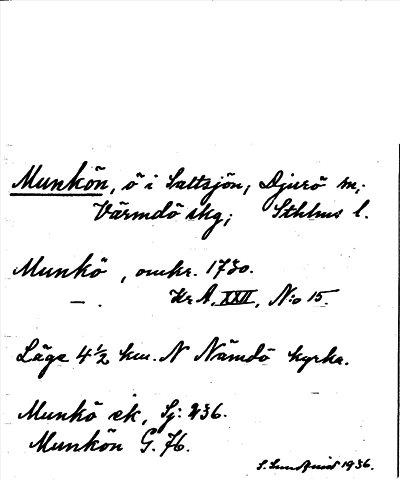 Munkön, ö i Saltsjön, Djurö m;
Värmdö skg; Sthlms l.
Munkö, omkr. 1730.
— . Kr A, XXII, N:o 15.
Läge 4½ km. N Nämdö kyrka.
Munkö ek, Sj: 236.
Munkön G. 76.
S. Lundquist 1936.